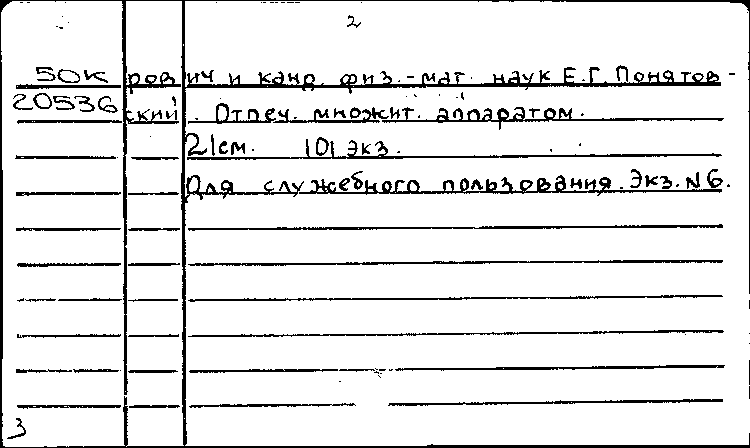 2
50К рович и канд. физ.-мат. наук Е.Г. Понятов-
20536 ский. Отпеч. множит. аппаратом.
21см. 101 экз.
Для служебного пользования. Экз. N6.
3